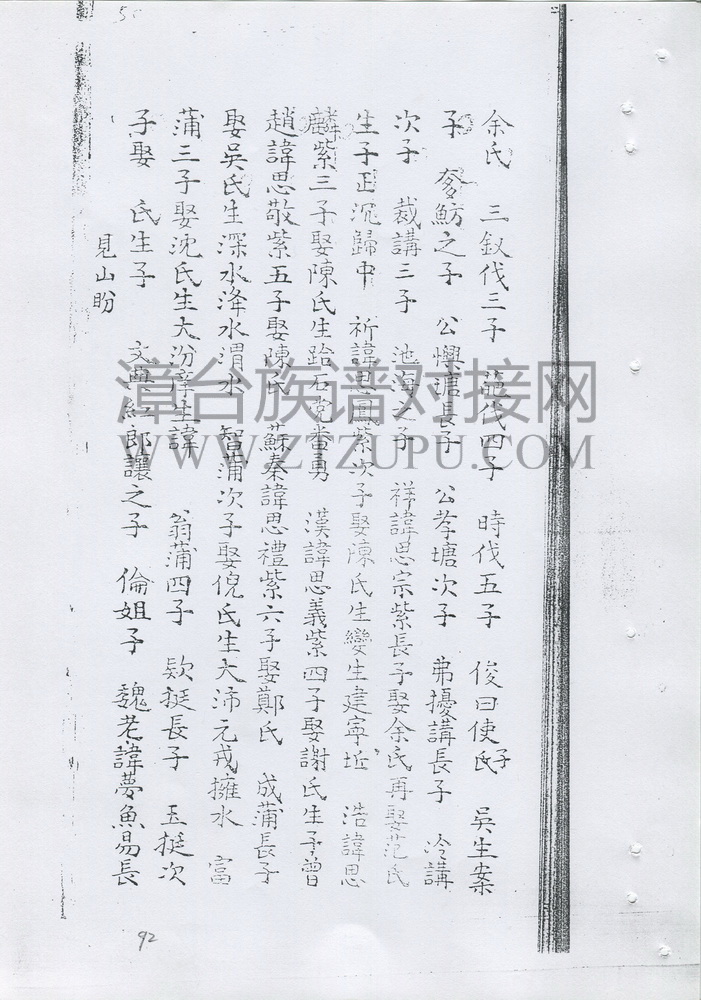 余氏 三釵伐三子 范伐四子 時伐五子 俊曰使氏子 吳生案
子 奓魴之子 公懊溏長子 公孝塘次子 弗擾講長子 冷講
次子 裁講三子 池海之子 祥諱思宗紫長子娶余氏再娶范氏
生子正沉歸中 祈諱思 紫次子娶陳氏生孌生建寧坵 浩諱思
麟紫三子娶陳氏生跲石党畨勇 漢諱思義紫四子娶謝氏生子曾
趙諱思敬紫五子娶陳氏 蘇秦諱思禮紫六子娶鄭氏 成蒲長子
娶吳氏生深水浲水渭水 智蒲次子娶倪氏生大沛元戎擁水 富
蒲三子娶沈氏生大汾 生諱 翁蒲四子 欵挺長子 玉挺次
子娶 氏生子 文興紅郎讓之子 倫姐子 魏老諱夢魚易長
見山盼
漳台族谱对接网
WWW.ZTZUPU.COM
92